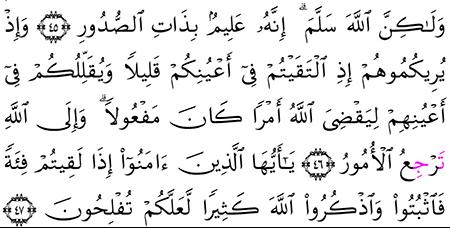 وَلَـٰكِنَّ ٱللَّهَ سَلَّمَ ۗ إِنَّهُۥ عَلِيمٌۢ بِذَاتِ ٱلصُّدُورِ ﴿٤٥﴾ وَإِذْ
يُرِيكُمُوهُمْ إِذِ ٱلْتَقَيْتُمْ فِىٓ أَعْيُنِكُمْ قَلِيلًا وَيُقَلِّلُكُمْ فِىٓ
أَعْيُنِهِمْ لِيَقْضِىَ ٱللَّهُ أَمْرًا كَانَ مَفْعُولًا ۗ وَإِلَى ٱللَّهِ
تَرْجِعُ ٱلْأُمُورُ ﴿٤٦﴾ يَـٰٓأَيُّهَا ٱلَّذِينَ ءَامَنُوٓا۟ إِذَا لَقِيتُمْ فِئَةً
فَٱثْبُتُوا۟ وَٱذْكُرُوا۟ ٱللَّهَ كَثِيرًا لَّعَلَّكُمْ تُفْلِحُونَ ﴿٤٧﴾